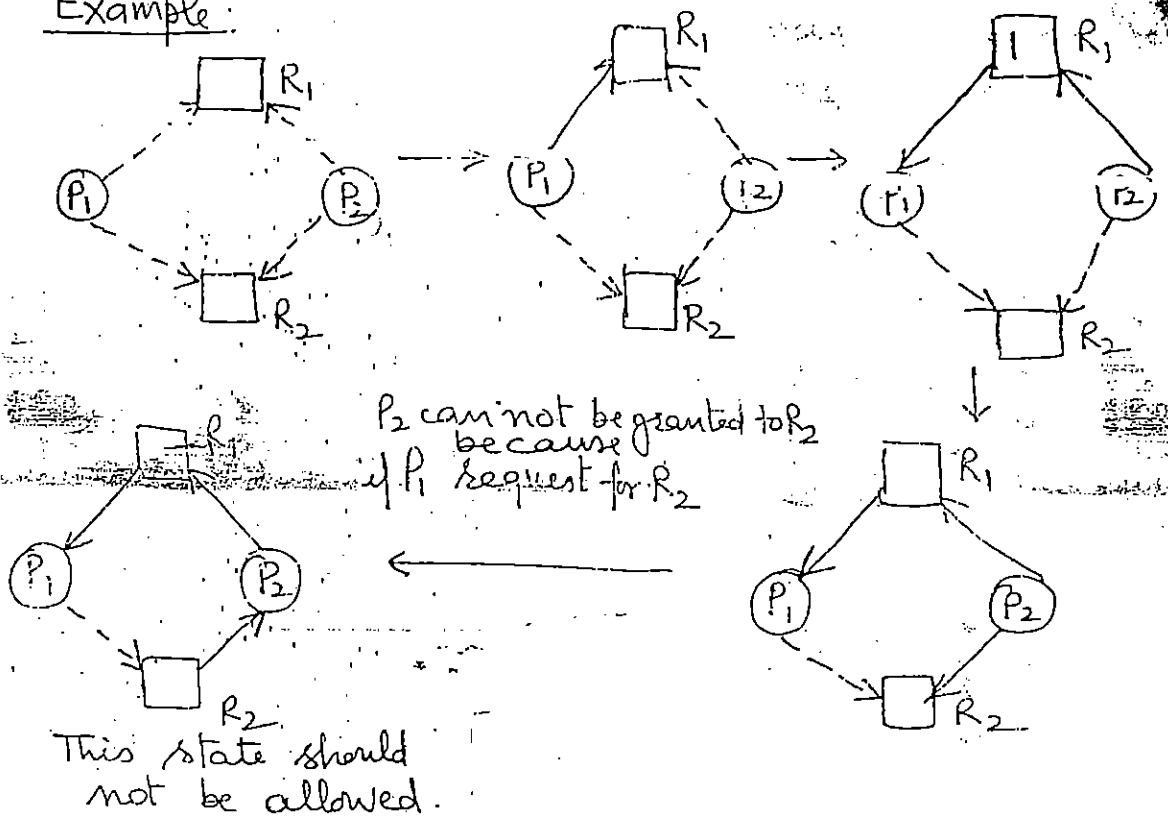 Example:
R1
P1
P2
R2
R1
P1
R2
1
R1
R2
P2 can not be granted to R2
because
if P1 request for R2
R1
P1
P2
R2
R1
P1
P2
R2
This state should
not be allowed.